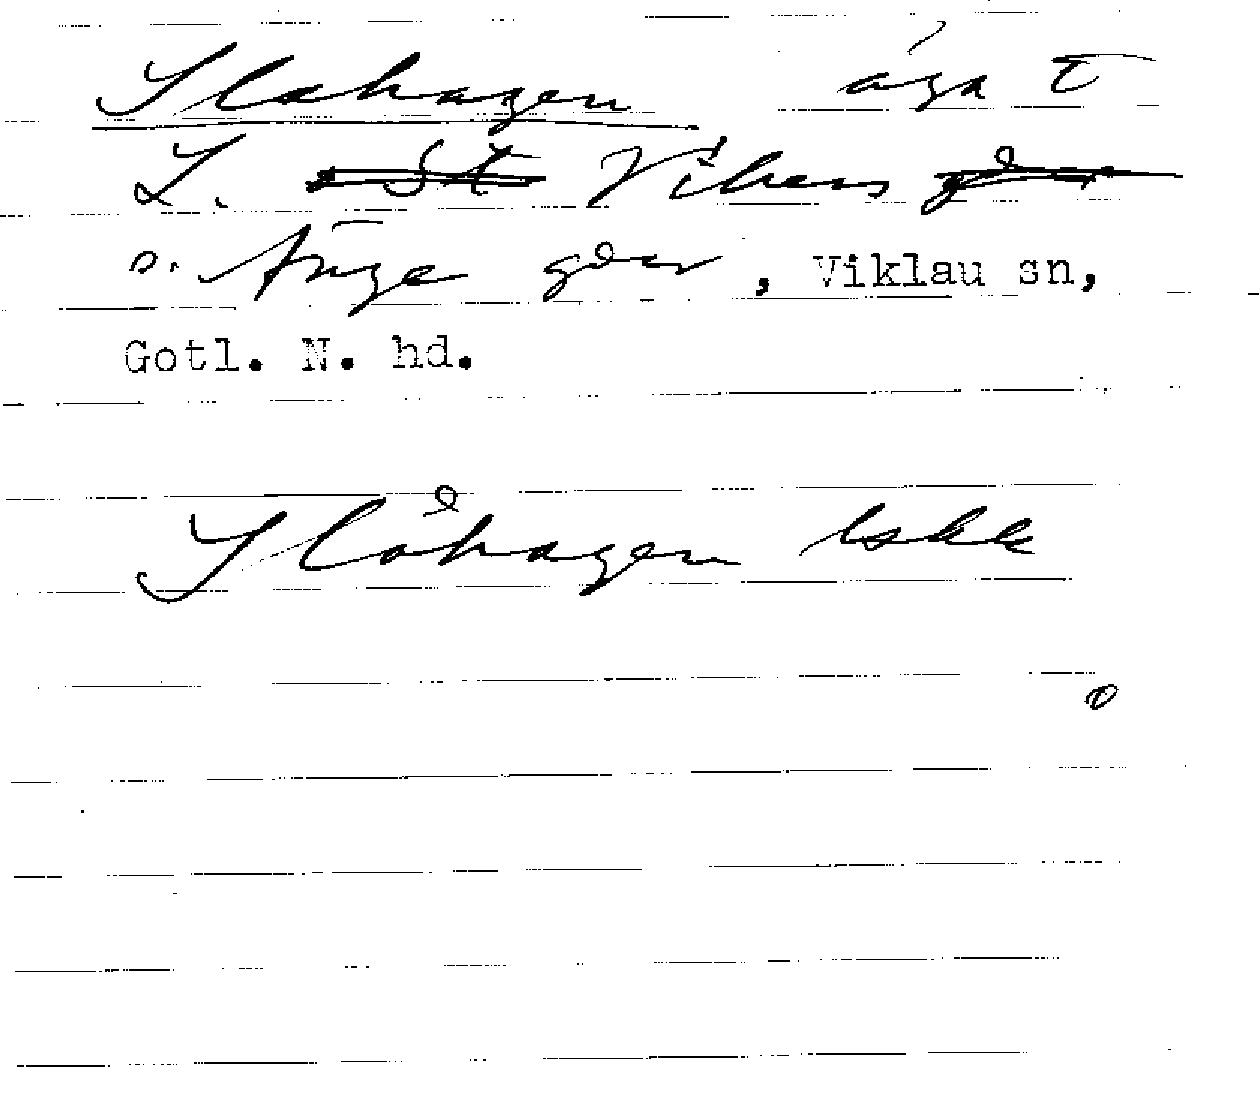 Slahagen äga t
L. St Vikers
o. Änge gdar, Viklau sn,
Gotl. N. hd.
Slåhagen lskk